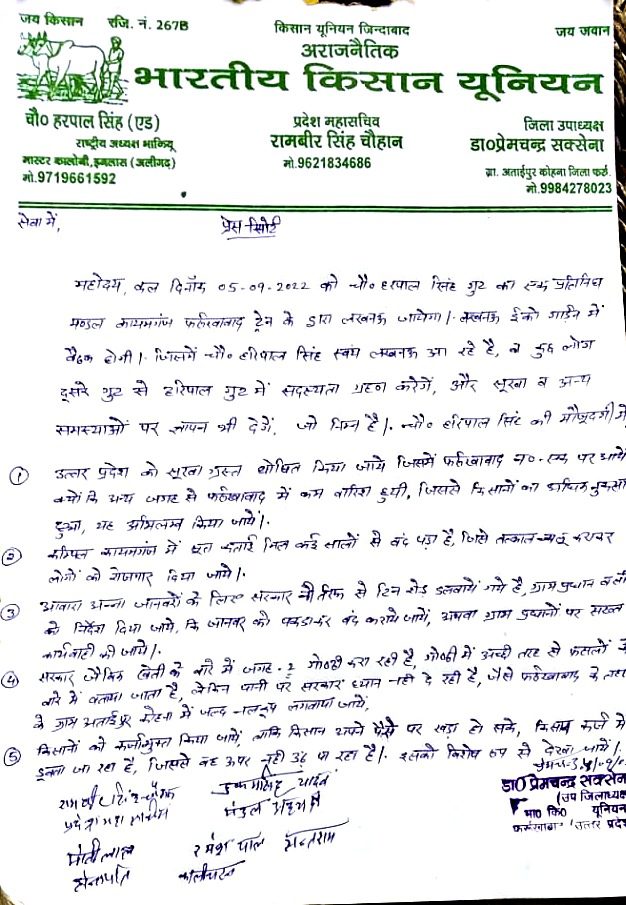 जय किसान रजि. नं. 267B किसान यूनियन जिन्दाबाद जय जवान
अराजनैतिक
भारतीय किसान यूनियन
चौ० हरपाल सिंह (एड)
राष्ट्रीय अध्यक्ष भाकियू
मास्टर कालोनी, इगलास (अलीगढ़)
मो.9719661592
प्रदेश महासचिव
रामबीर सिंह चौहान
मो.9621834686
जिला उपाध्यक्ष
डा०प्रेमचन्द्र सक्सेना
ग्रा. अताईपुर कोहना जिला फर्रु.
मो.9984278023
सेवा में,
प्रेस रिपोर्ट
महोदय, कल दिनाँक 05-09-2022 को चौ० हरपाल सिंह गुट का एक प्रतिनिध
मण्डल कायमगंज फर्रुखाबाद ट्रेन के द्वारा लखनऊ जायेगा। लखनऊ ईको गार्डन में
बैठक होगी। जिसमें चौ० हरिपाल सिंह स्वयं लखनऊ आ रहे है, व कुछ लोग
दूसरे गुट से हरिपाल गुट में सदस्यता ग्रहण करेगें, और सूखा व अन्य
समस्याओं पर ज्ञापन भी देगें, जो निम्न है। चौ० हरिपाल सिंह की मौजूदगी में
① उत्तर प्रदेश को सूखा ग्रस्त घोषित किया जाये जिसमें फर्रुखाबाद न०-एक पर आये
क्यों कि अन्य जगह से फर्रुखाबाद में कम बारिश हुयी, जिससे किसानों का आर्थिक
हुआ, यह अविलम्ब किया जाये।
② कम्पिल कायमगंज में सूत कताई मिल कई सालों से बंद पड़ा है, जिसे तत्काल चालू कराकर
लोगों को रोजगार दिया जाये।
③ आवारा अन्ना जानवरों के लिए सरकार की तरफ से टिन शेड डलवाये गये है, ग्राम प्रधान
को निर्देश दिया जाये, कि जानवर को पकडाकर बंद कराये जाये, अथवा ग्राम प्रधानों पर सख्त
कार्यवाही की जाये।
④ सरकार जैविक खेती के बारे में जगह-2 गोष्ठी करा रही है, गोष्ठी में अच्छी तरह से फसलों के
बारे में बताया जाता है, लेकिन पानी पर सरकार ध्यान नही दे रही है, जैसे फर्रुखाबाद के
के ग्राम अताईपुर कोहना में जल्द नलकूप लगवाया जाये,
⑤ किसानों को कर्जामुक्त किया जाये, ताकि किसान अपने पैरों पर खड़ा हो सके, किसान कर्ज में
डूबता जा रहा है, जिससे वह ऊपर नही उठ पा रहा है। इसको विशेष रुप से देखा जाये।
प्रदेश महासचिव
यादव
मण्डल अध्यक्ष
डा० प्रेमचन्द्र सक्सेना
(उप जिलाध्यक्ष
भा० कि० यूनियन
फर्रुखाबाद उत्तर प्रदेश
मोतीलाल रमेश पाल
सेनापति कालीचरन